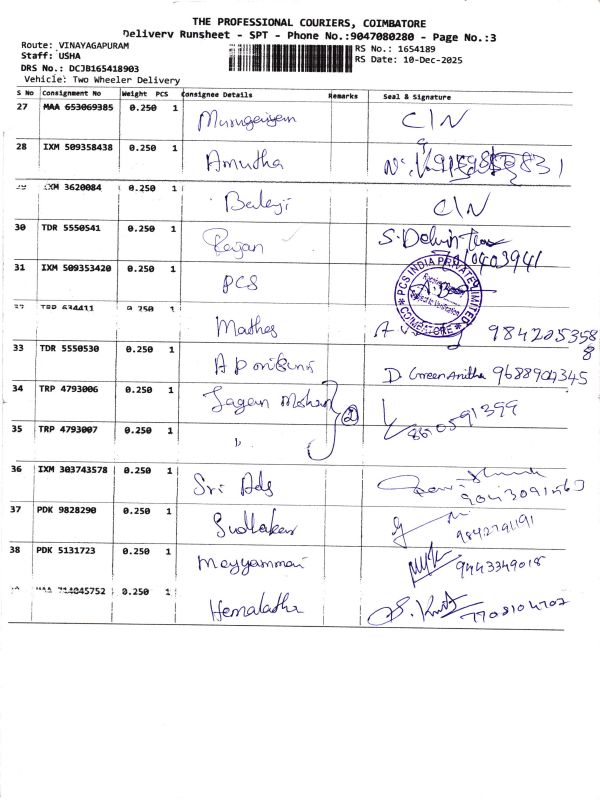 THE PROFESSIONAL COURIERS, COIMBATORE
Delivery Runsheet - SPT - Phone No.:9047080280 - Page No.:3
Route: VINAYAGAPURAM RS No.: 1654189
Staff: USHA RS Date: 10-Dec-2025
DRS No.: DCJB165418903
Vehicle: Two Wheeler Delivery
S No Consignment No Weight PCS Consignee Details Remarks Seal & Signature
27 MAA 653069385 0.250 1 C/N
28 IXM 509358438 0.250 1 Amutha
29 IXM 3620084 0.250 1 Balaji C/N
30 TDR 5550541 0.250 1 Rajan
31 IXM 509353420 0.250 1 PCS
PCS INDIA PRIVATE LIMITED
COIMBATORE
0.250 1 Mathes 9842053588
33 TDR 5550530 0.250 1 9688904345
34 TRP 4793006 0.250 1 Jagan Mohan 2
35 TRP 4793007 0.250 1 "
36 IXM 303743578 0.250 1 Sri Ads
37 PDK 9828290 0.250 1 Sudhakar
38 PDK 5131723 0.250 1 Meyyammai 9443349018
0.250 1 Hemalatha